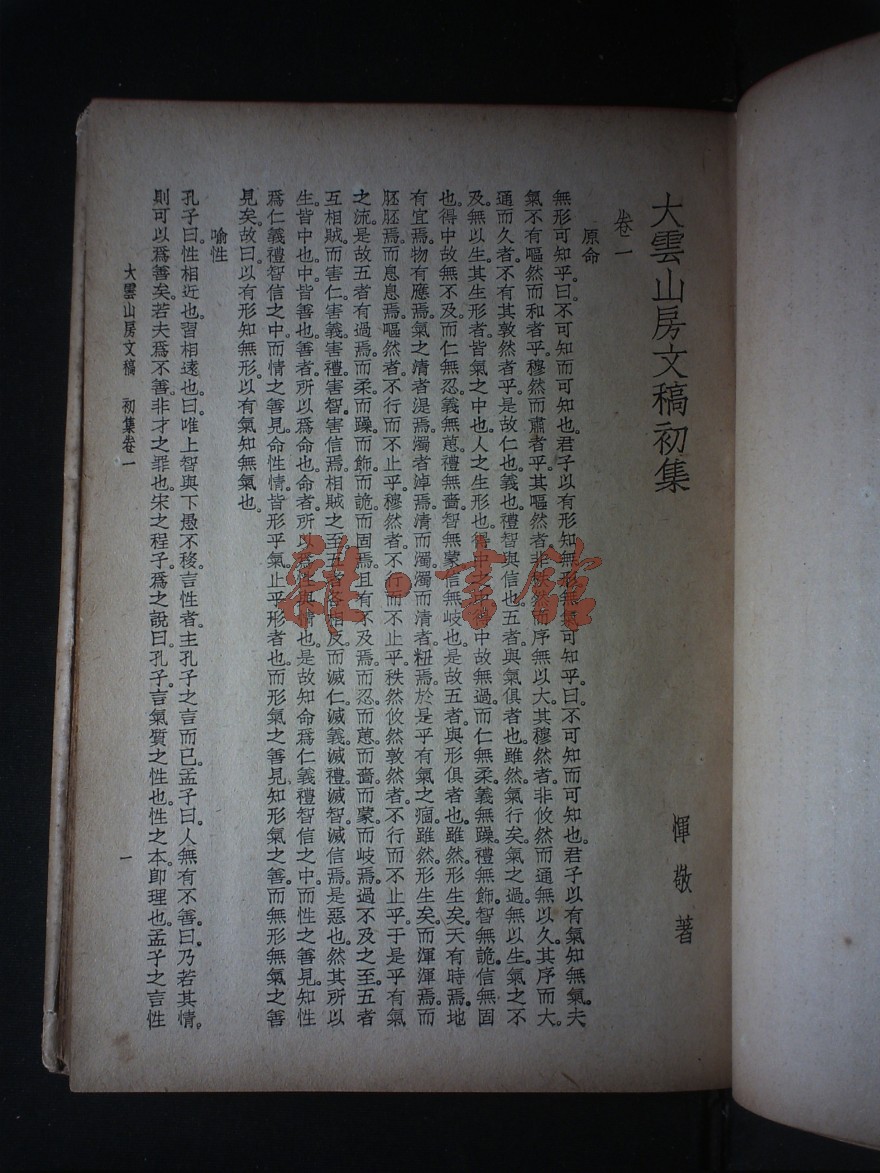 大雲山房文稿初集
惲敬著
卷一
原命
無形可知乎。曰。不可知而可知也。君子以有形知無形。無氣可知乎。曰。不可知而可知也。君子以有氣知無氣。夫
氣不有嘔然而和者乎。穆然而肅者乎。其嘔然者。非秩然而序無以大。其穆然者。非攸然而通無以久。其序而大。
通而久者。不有其敦然者乎。是故仁也。義也。禮智與信也。五者與氣俱者也。雖然。氣行矣。氣之過。無以生。氣之不
及。無以生。其生形者。皆氣之中也。人之生形也。得中之中。得中故無過。而仁無柔。義無躁。禮無飾。智無詭。信無固
也。得中故無不及。而仁無忍。義無葸。禮無嗇。智無蒙。信無岐也。是故五者與形俱者也。雖然。形生矣。天有時焉。地
有宜焉。物有應焉。氣之清者湜焉。濁者淖焉。清而濁。濁而清者粈焉。於是乎有氣之痼。雖然。形生矣。而渾渾焉。而
胚胚焉。而息息焉。嘔然者。不行而不止乎。穆然者。不行而不止乎。秩然攸然敦然者。不行而不止乎。于是乎有氣
之流。是故五者有過焉。而柔而躁。而飾而詭。而固焉。且有不及焉。而忍而葸。而嗇而蒙。而岐焉。過不及之至。五者
互相賊。而害仁害義害禮害智害信焉。相賊之至。五者各相反。而滅仁滅義滅禮滅智滅信焉。是惡也。然其所以
生。皆中也。中皆善也。善者。所以爲命也。命者。所以爲性與情也。是故知命爲仁義禮智信之中。而性之善見。知性
爲仁義禮智信之中。而情之善見。命性情。皆形乎氣。止乎形者也。而形氣之善見。知形氣之善。而無形無氣之善
見矣。故曰。以有形知無形。以有氣知無氣也。
喻性
孔子曰。性相近也。習相遠也。曰。唯上智與下愚不移。言性者。主孔子之言而已。孟子曰。人無有不善。曰。乃若其情。
則可以爲善矣。若夫爲不善。非才之罪也。宋之程子。爲之說曰。孔子言氣質之性也。性之本。卽理也。孟子之言性
大雲山房文稿 初集卷一
一
雜·書館